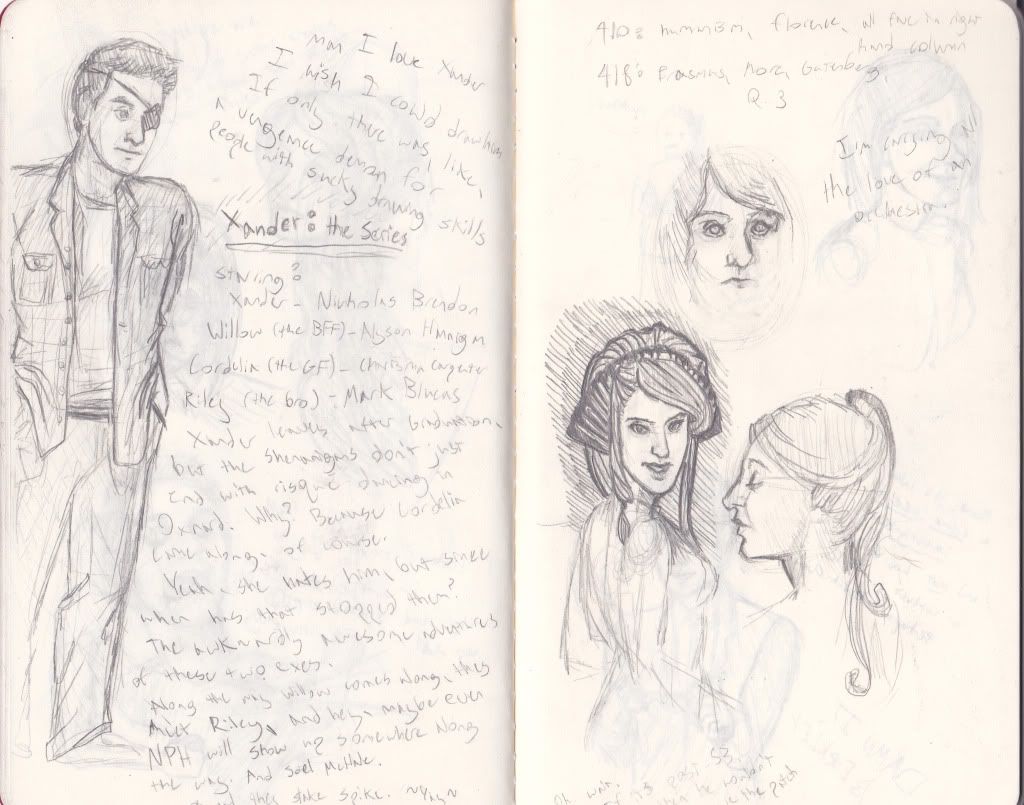 man I love Xander
I wish I could draw him
If only there was, like,
a vengeance demon for
people with sucky drawing skills
Xander: the Series
starring:
Xander - Nicholas Brendon
Willow (the BFF) - Alyson Hannigan
Cordelia (the GF) - Charisma Carpenter
Riley (the bro) - Mark Blucas
Xander leaves after Graduation,
but the shenanigans don't just
end with risque dancing in
Oxnard. Why? Because Cordelia
came along, of course.
Yeah, she hates him, but since
when has that stopped them?
The awkwardly awesome adventures
of these two exes.
Along the way Willow comes along, they
meet Riley, and hey, maybe even
NPH will show up somewhere along
the way. And Joel McHale.
and they stake Spike. ~Yay~
410: humanism, Florence, all five in right
hand column
418: Erasmus, More, Gutenberg,
Q. 3
I'm carrying all
the love of an
orchestra.
oh wait.
past 53.
when he wouldn't
the patch